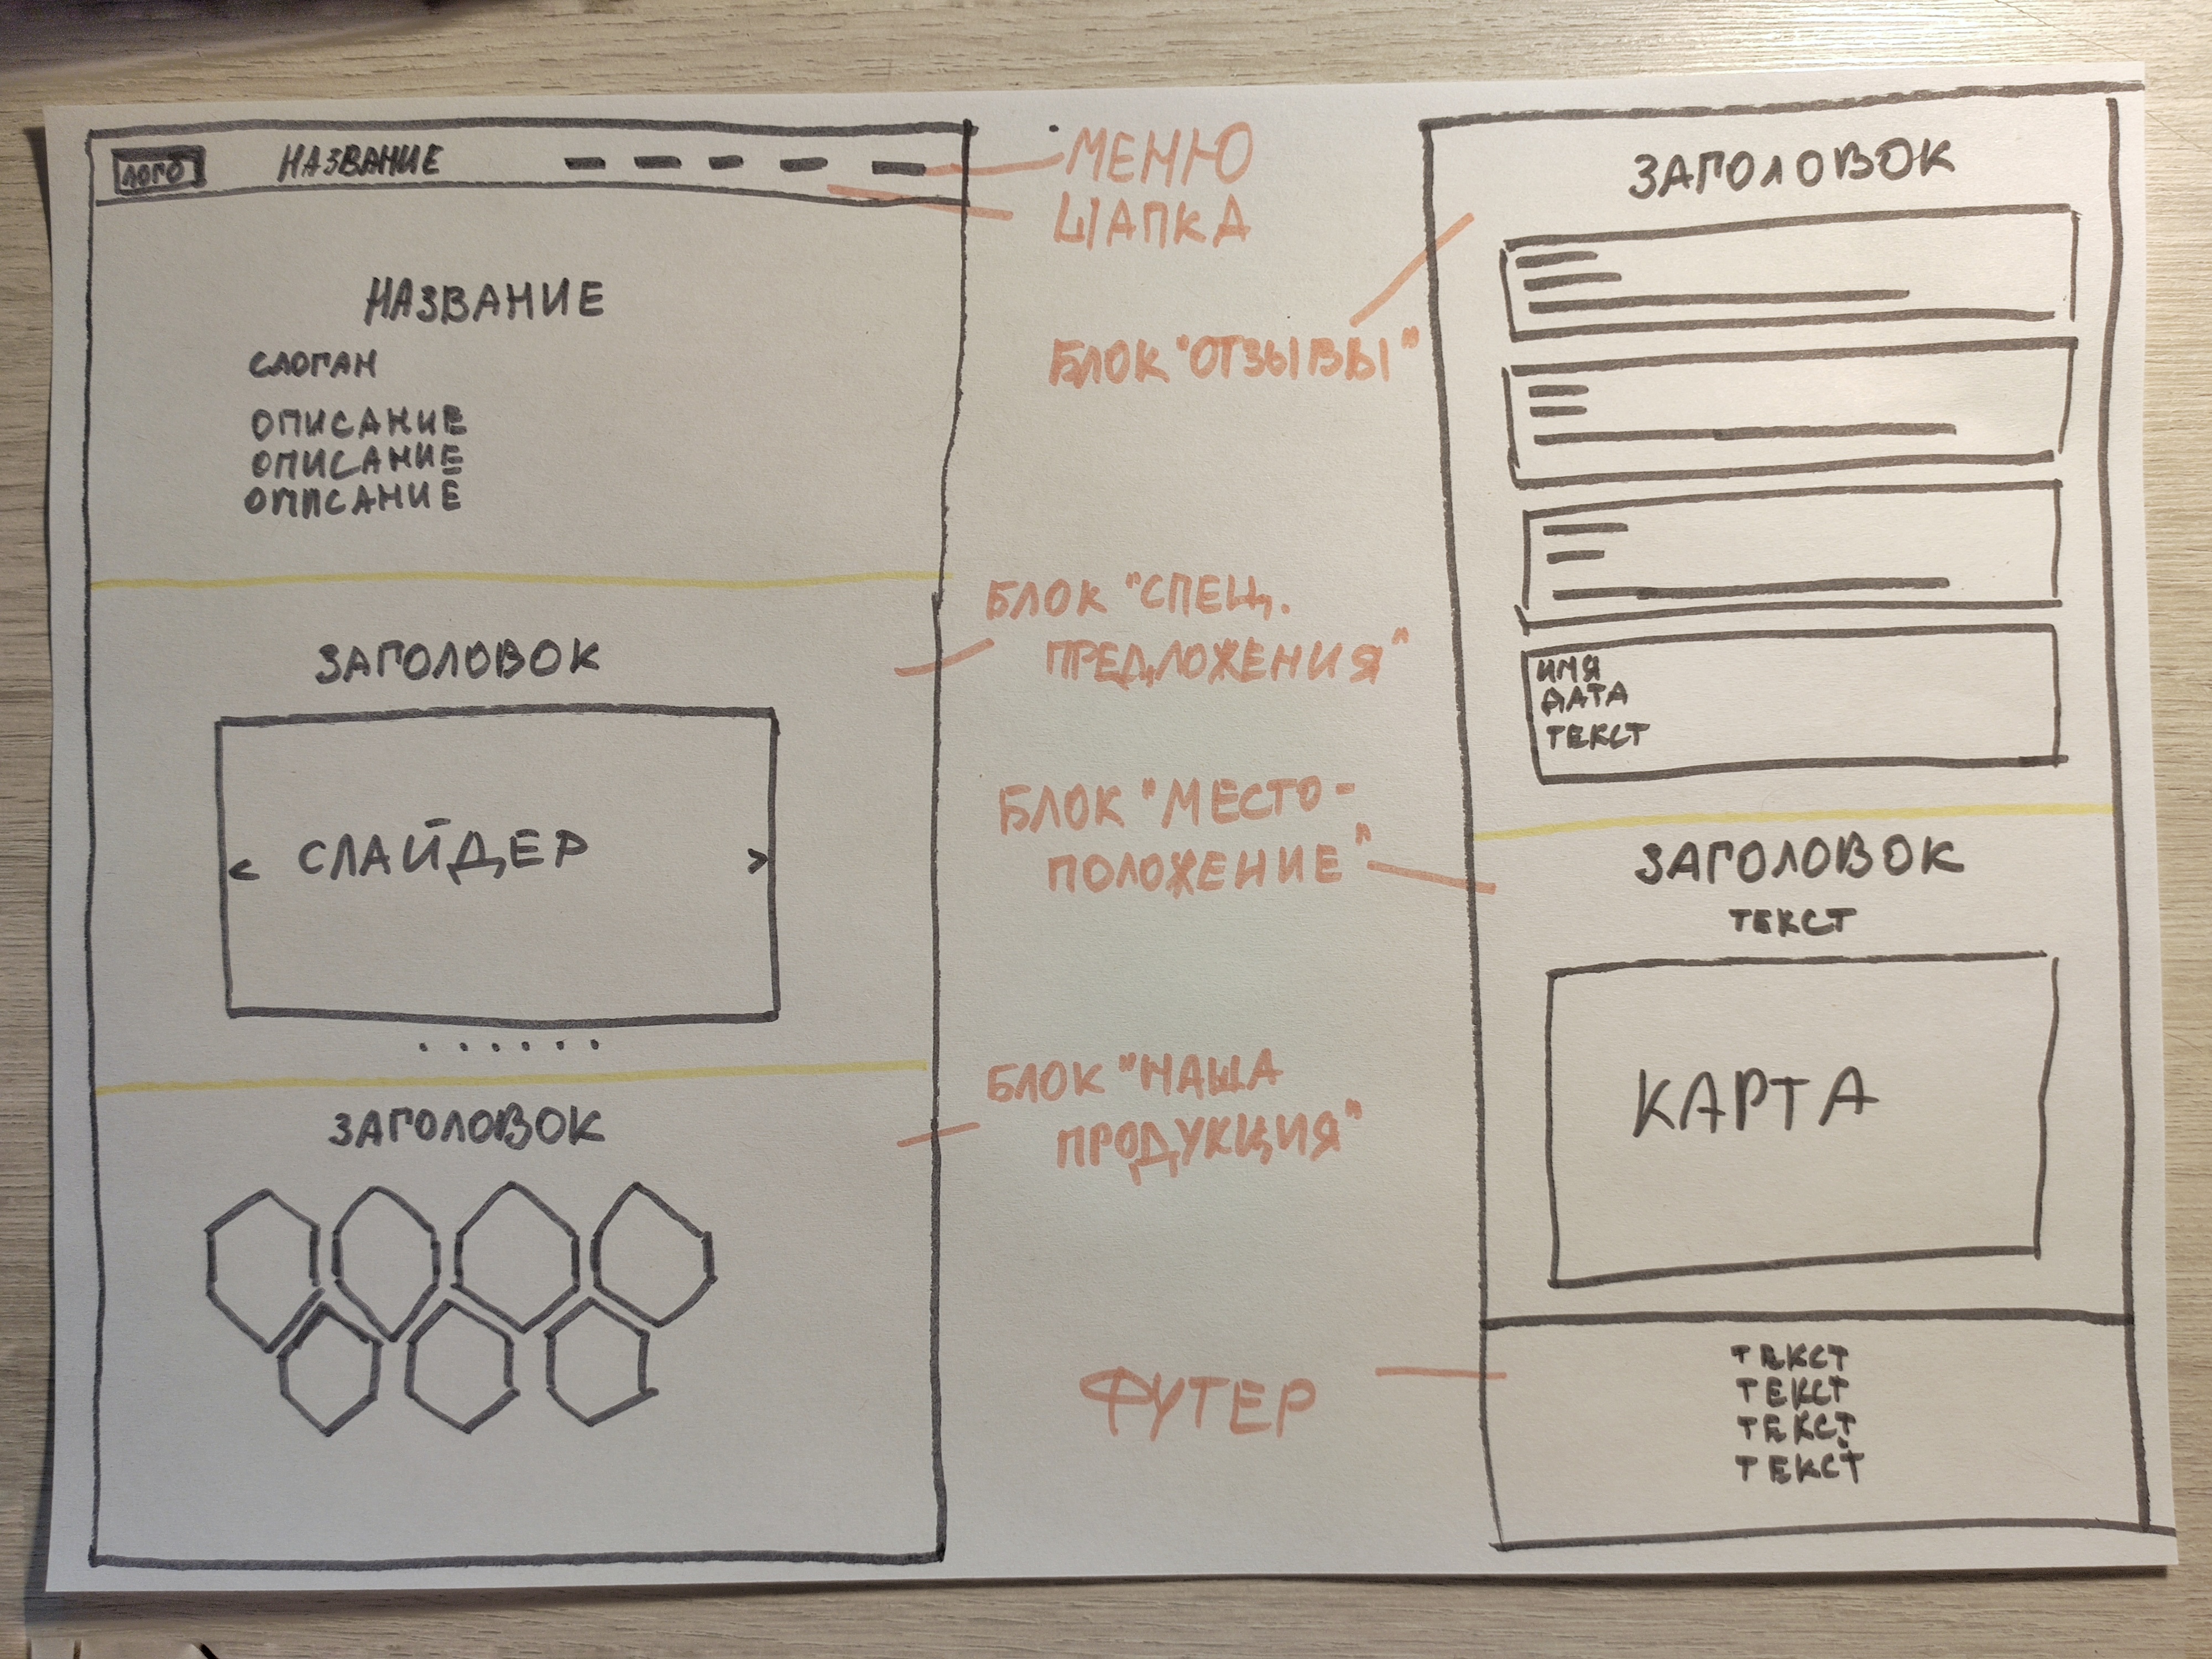 ЛОГО НАЗВАНИЕ
НАЗВАНИЕ
СЛОГАН
ОПИСАНИЕ
ОПИСАНИЕ
ОПИСАНИЕ
ЗАГОЛОВОК
< СЛАЙДЕР >
ЗАГОЛОВОК
МЕНЮ
ШАПКА
БЛОК "ОТЗЫВЫ"
БЛОК "СПЕЦ.
ПРЕДЛОЖЕНИЯ"
БЛОК "МЕСТО-
ПОЛОЖЕНИЕ"
БЛОК "НАША
ПРОДУКЦИЯ"
ФУТЕР
ЗАГОЛОВОК
ИМЯ
ДАТА
ТЕКСТ
ЗАГОЛОВОК
ТЕКСТ
КАРТА
ТЕКСТ
ТЕКСТ
ТЕКСТ
ТЕКСТ